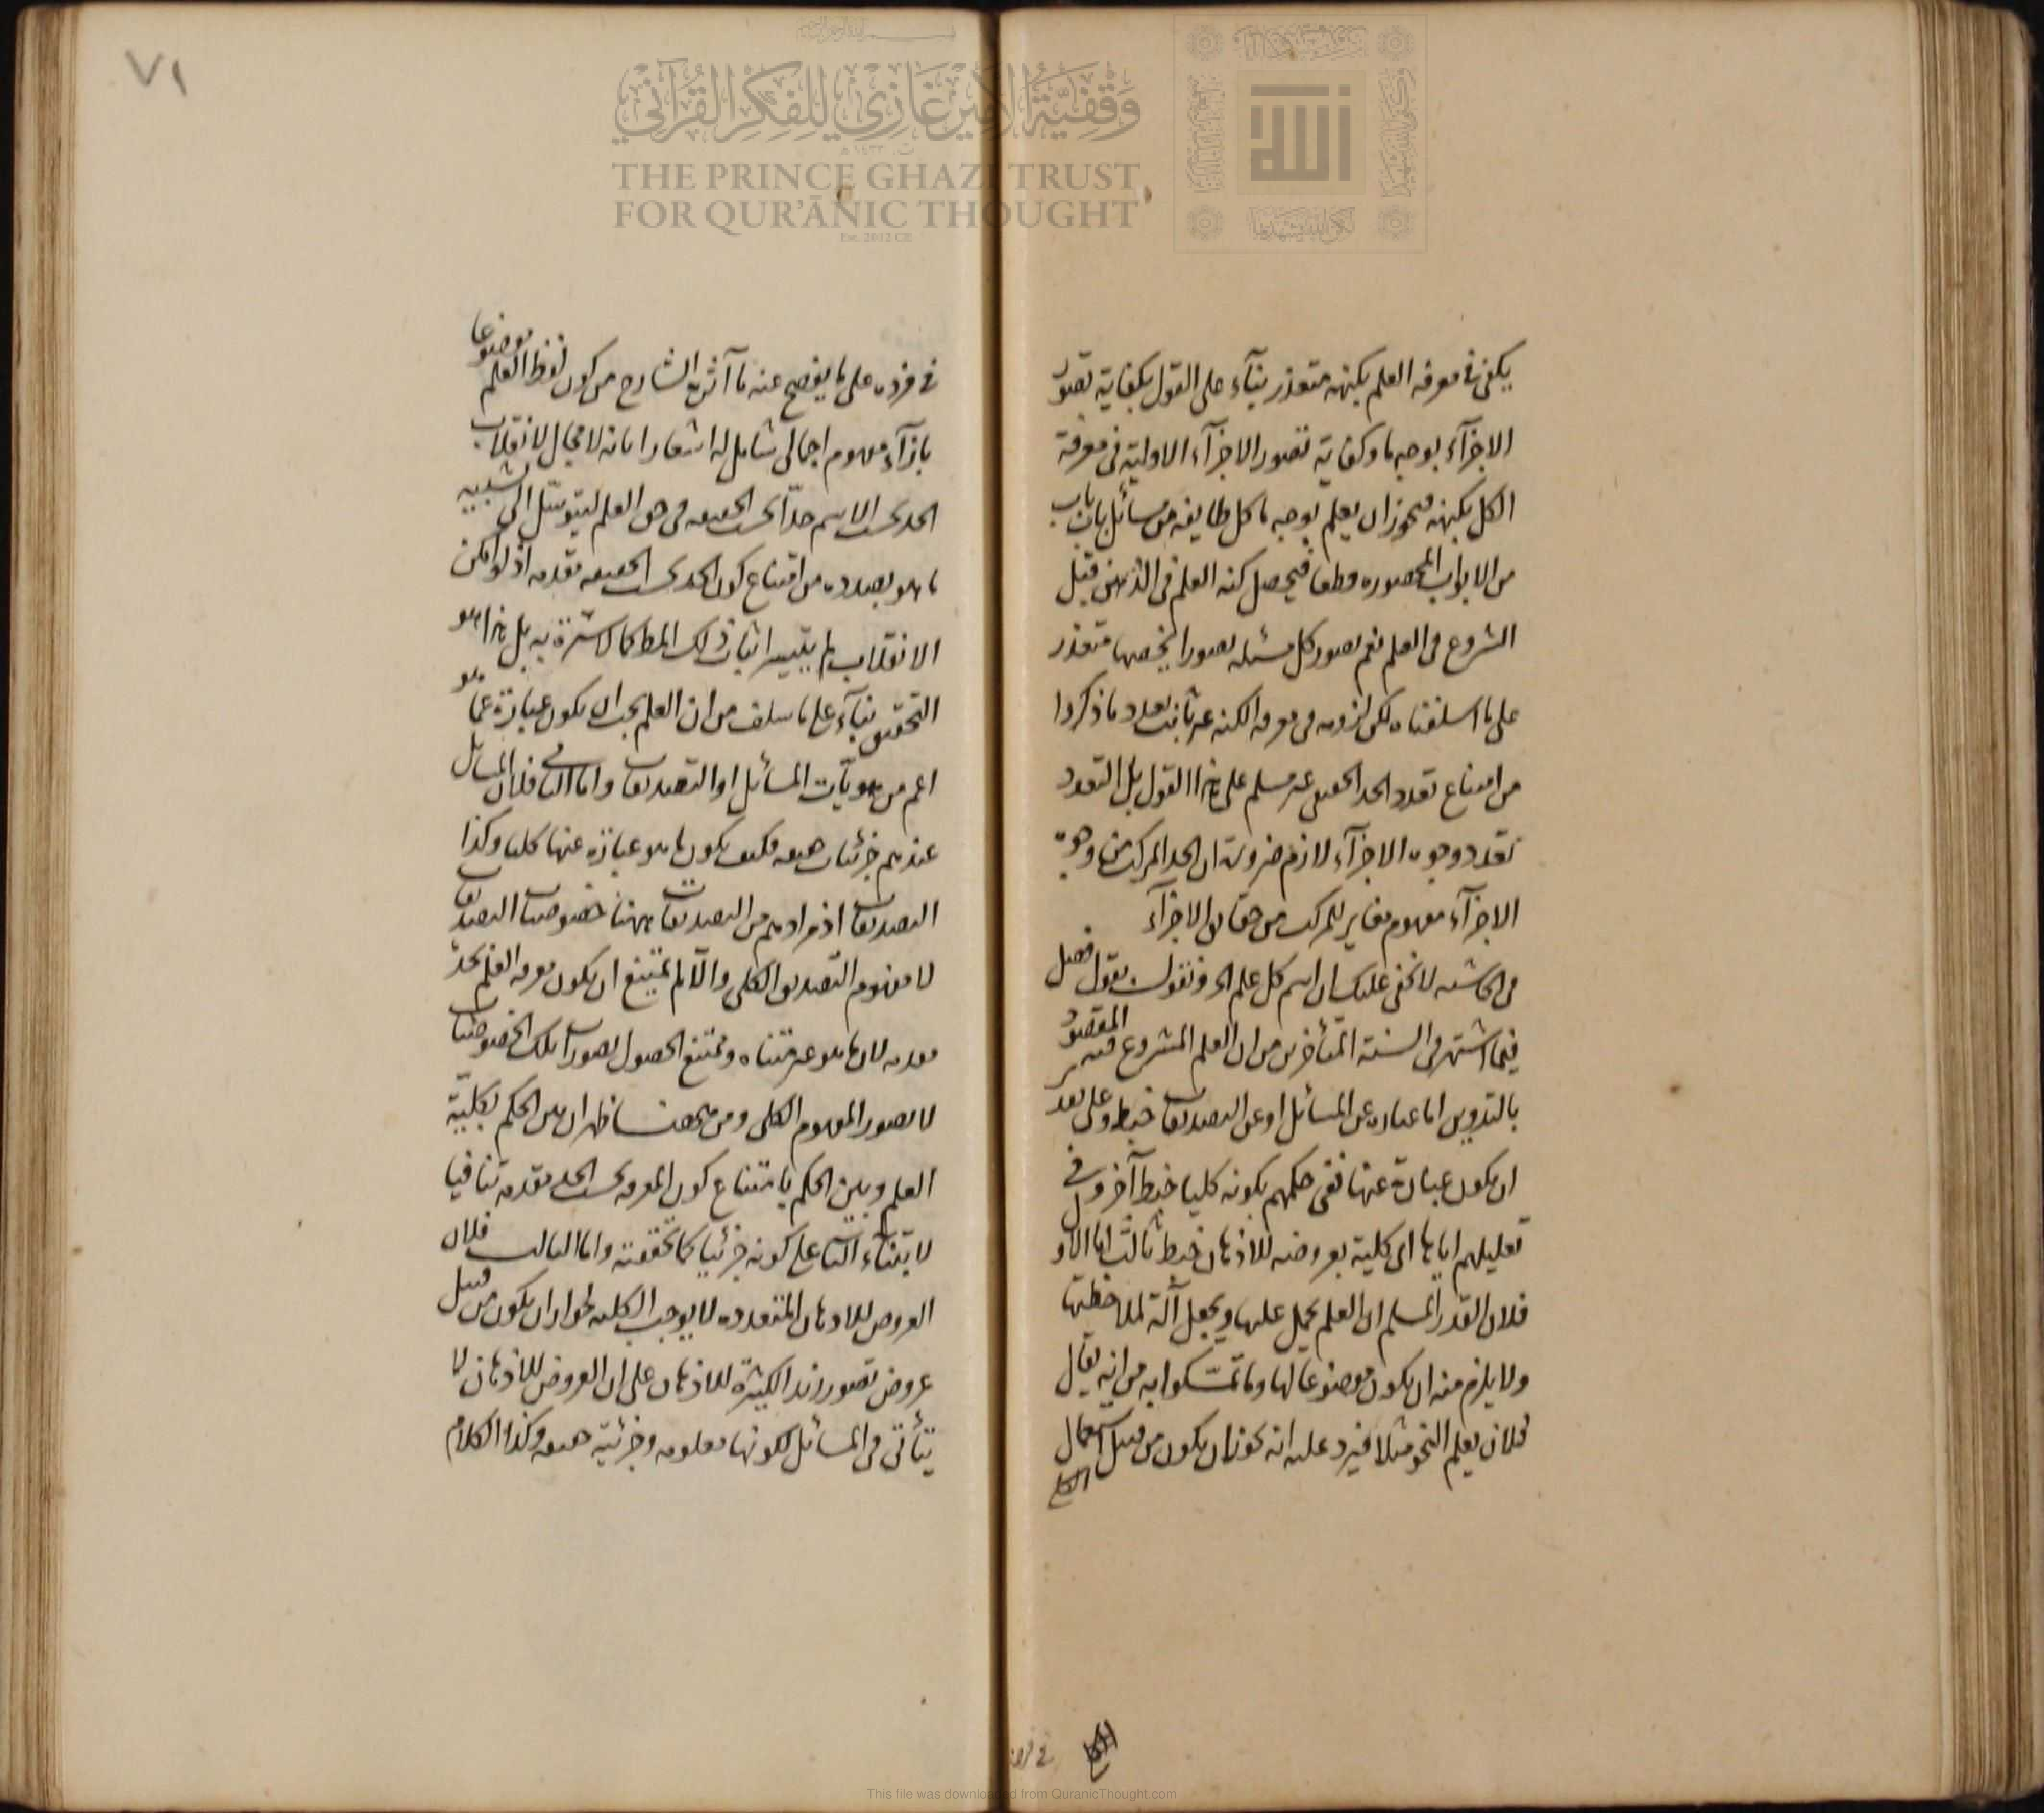 ٧١
وَقْفِيَّةُ الأَمِيرْ غَازِي لِلْفِكْرِ القُرْآنِي
THE PRINCE GHAZI TRUST
FOR QUR'ĀNIC THOUGHT
Est. 2012 CE
يكفى فى معرفة العلم بكنهه متعذر بنآء على القول بكفاية تصور
الاجزآء بوجه ما وكفاية تصور الاجزآء الاولية فى معرفة
الكل بكنهه فيجوز ان يعلم بوجه ما كل طايفة من مسائل باب باب
من الابواب المحصورة قطعا فيحصل كنه العلم فى الذهن قبل
الشروع فى العلم نعم تصور كل مسئلة تصورا يخصها متعذر
على ما اسلفناه لكن لزومه فى معرفة الكنه غير ثابت بعد وما ذكروا
من امتناع تعدد الحد الحقيقى غير مسلم على هذا القول بل التعدد
تعدد وجوه الاجزآء لازم ضرورة ان الحد المركب من وجوه
الاجزآء مفهوم مغاير للمركب من حقايق الاجزآء
فى الحاشية لا يخفى عليك ان اسم كل علم الخ فنقول نقول فصل
فيما اشتهر فى السنة المتأخرين من ان العلم المشروع فيه المقصود
بالتدوين اما عبارة عن المسائل او عن التصديقات خبط وعلى تقدير
ان يكون عبارة عنها ففى حكمهم بكونه كليا خبط آخر وفى
تعليلهم اياها اى كلية بعروضه للاذهان خبط ثالث اما الاول
فلان القدر المسلم ان العلم يحمل عليها ويجعل آلة لملاحظتها
ولا يلزم منه ان يكون موضوعا لها وما تمسكوا به من انه يقال
فلان يعلم النحو مثلا فيرد عليه انه يجوز ان يكون من قبيل استعمال
الكلى
فى فرده على ما يفصح عنه ما آثره الشارح من كون لفظ العلم موضوعا
بازآء مفهوم اجمالى شامل له اشعارا بانه لا مجال لانقلاب
الحد بحسب الاسم حدا بحسب الحقيقة فى حق العلم ليتوسل الى تشبيه
ما هو بصدده من امتناع كون الحد بحسب الحقيقة مقدمة اذ لو امكن
الانقلاب لم يتيسر اثبات ذلك المط كما لا سترة به بل هذا هو
التحقيق بنآء على ما سلف من ان العلم يجب ان يكون عبارة عما هو
اعم من هويات المسائل او التصديقات واما الثانى فلان المسائل
عندهم جزئيات حقيقة فكيف يكون ما هو عبارة عنها كليا وكذا
التصديقات اذ مرادهم من التصديقات ههنا خصوصيات التصديقات
لا مفهوم التصديق الكلى والا لم يمتنع ان يكون معرفة العلم بحده
مقدمة لان ما هو غير متناه وممتنع الحصول تصورات تلك الخصوصيات
لا تصور المفهوم الكلى ومن ههنا ظهر ان بين الحكم بكلية
العلم وبين الحكم بامتناع كون المعرفة بحسب الحد مقدمة تنافيا
لابتناء الثانى على كونه جزئيا كما تحققته واما الثالث فلان
العروض للاذهان المتعددة لا يوجب الكلية لجواز ان يكون من قبيل
عروض تصور زيد الكثيرة للاذهان على ان العروض للاذهان لا
يتأتى فى المسائل لكونها معلومة وجزئية حقيقة وكذا الكلام
This file was downloaded from QuranicThought.com